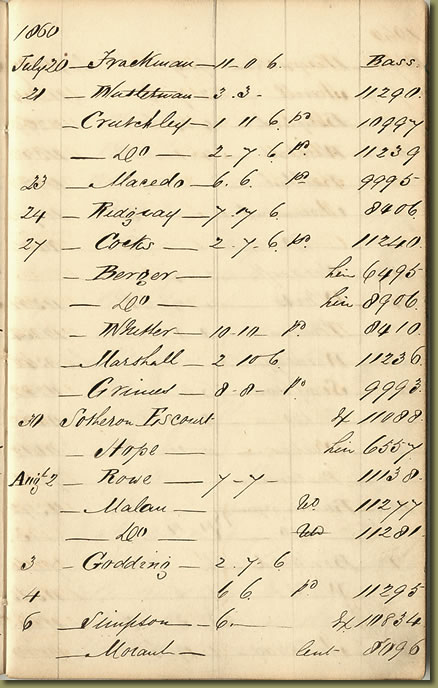 1860
July 20 — Frackman — 11 0 6. Bass.
21 — Watterman — 3. 3 - 11290.
— Crutchley — 1 11 6. pd 10997
— Do — 2. 7. 6. pd 11239
23 — Macedo — 6. 6. pd 9995
24 — Ridgway — 7. 17 6 8406.
27 — Cocks — 2. 7. 6. pd. 11240.
— Berger — hire 6495
— Do — hire 8906.
— Whitter — 10-10 — pd 8410
— Marshall — 2 10 6. 11236.
— Grimes — 8-8- pd 9993.
31 Sotheron Escourt Ex 11088.
— Hope hire 6557
Augt 2 — Rowe — 7-7- 11138.
— Malan — 11277
— Do — 11281
3 — Godding — 2. 7. 6
4 6 6. pd 11295
6 — Simpson — 6. — Ex 10834
— Morant — lent 8096